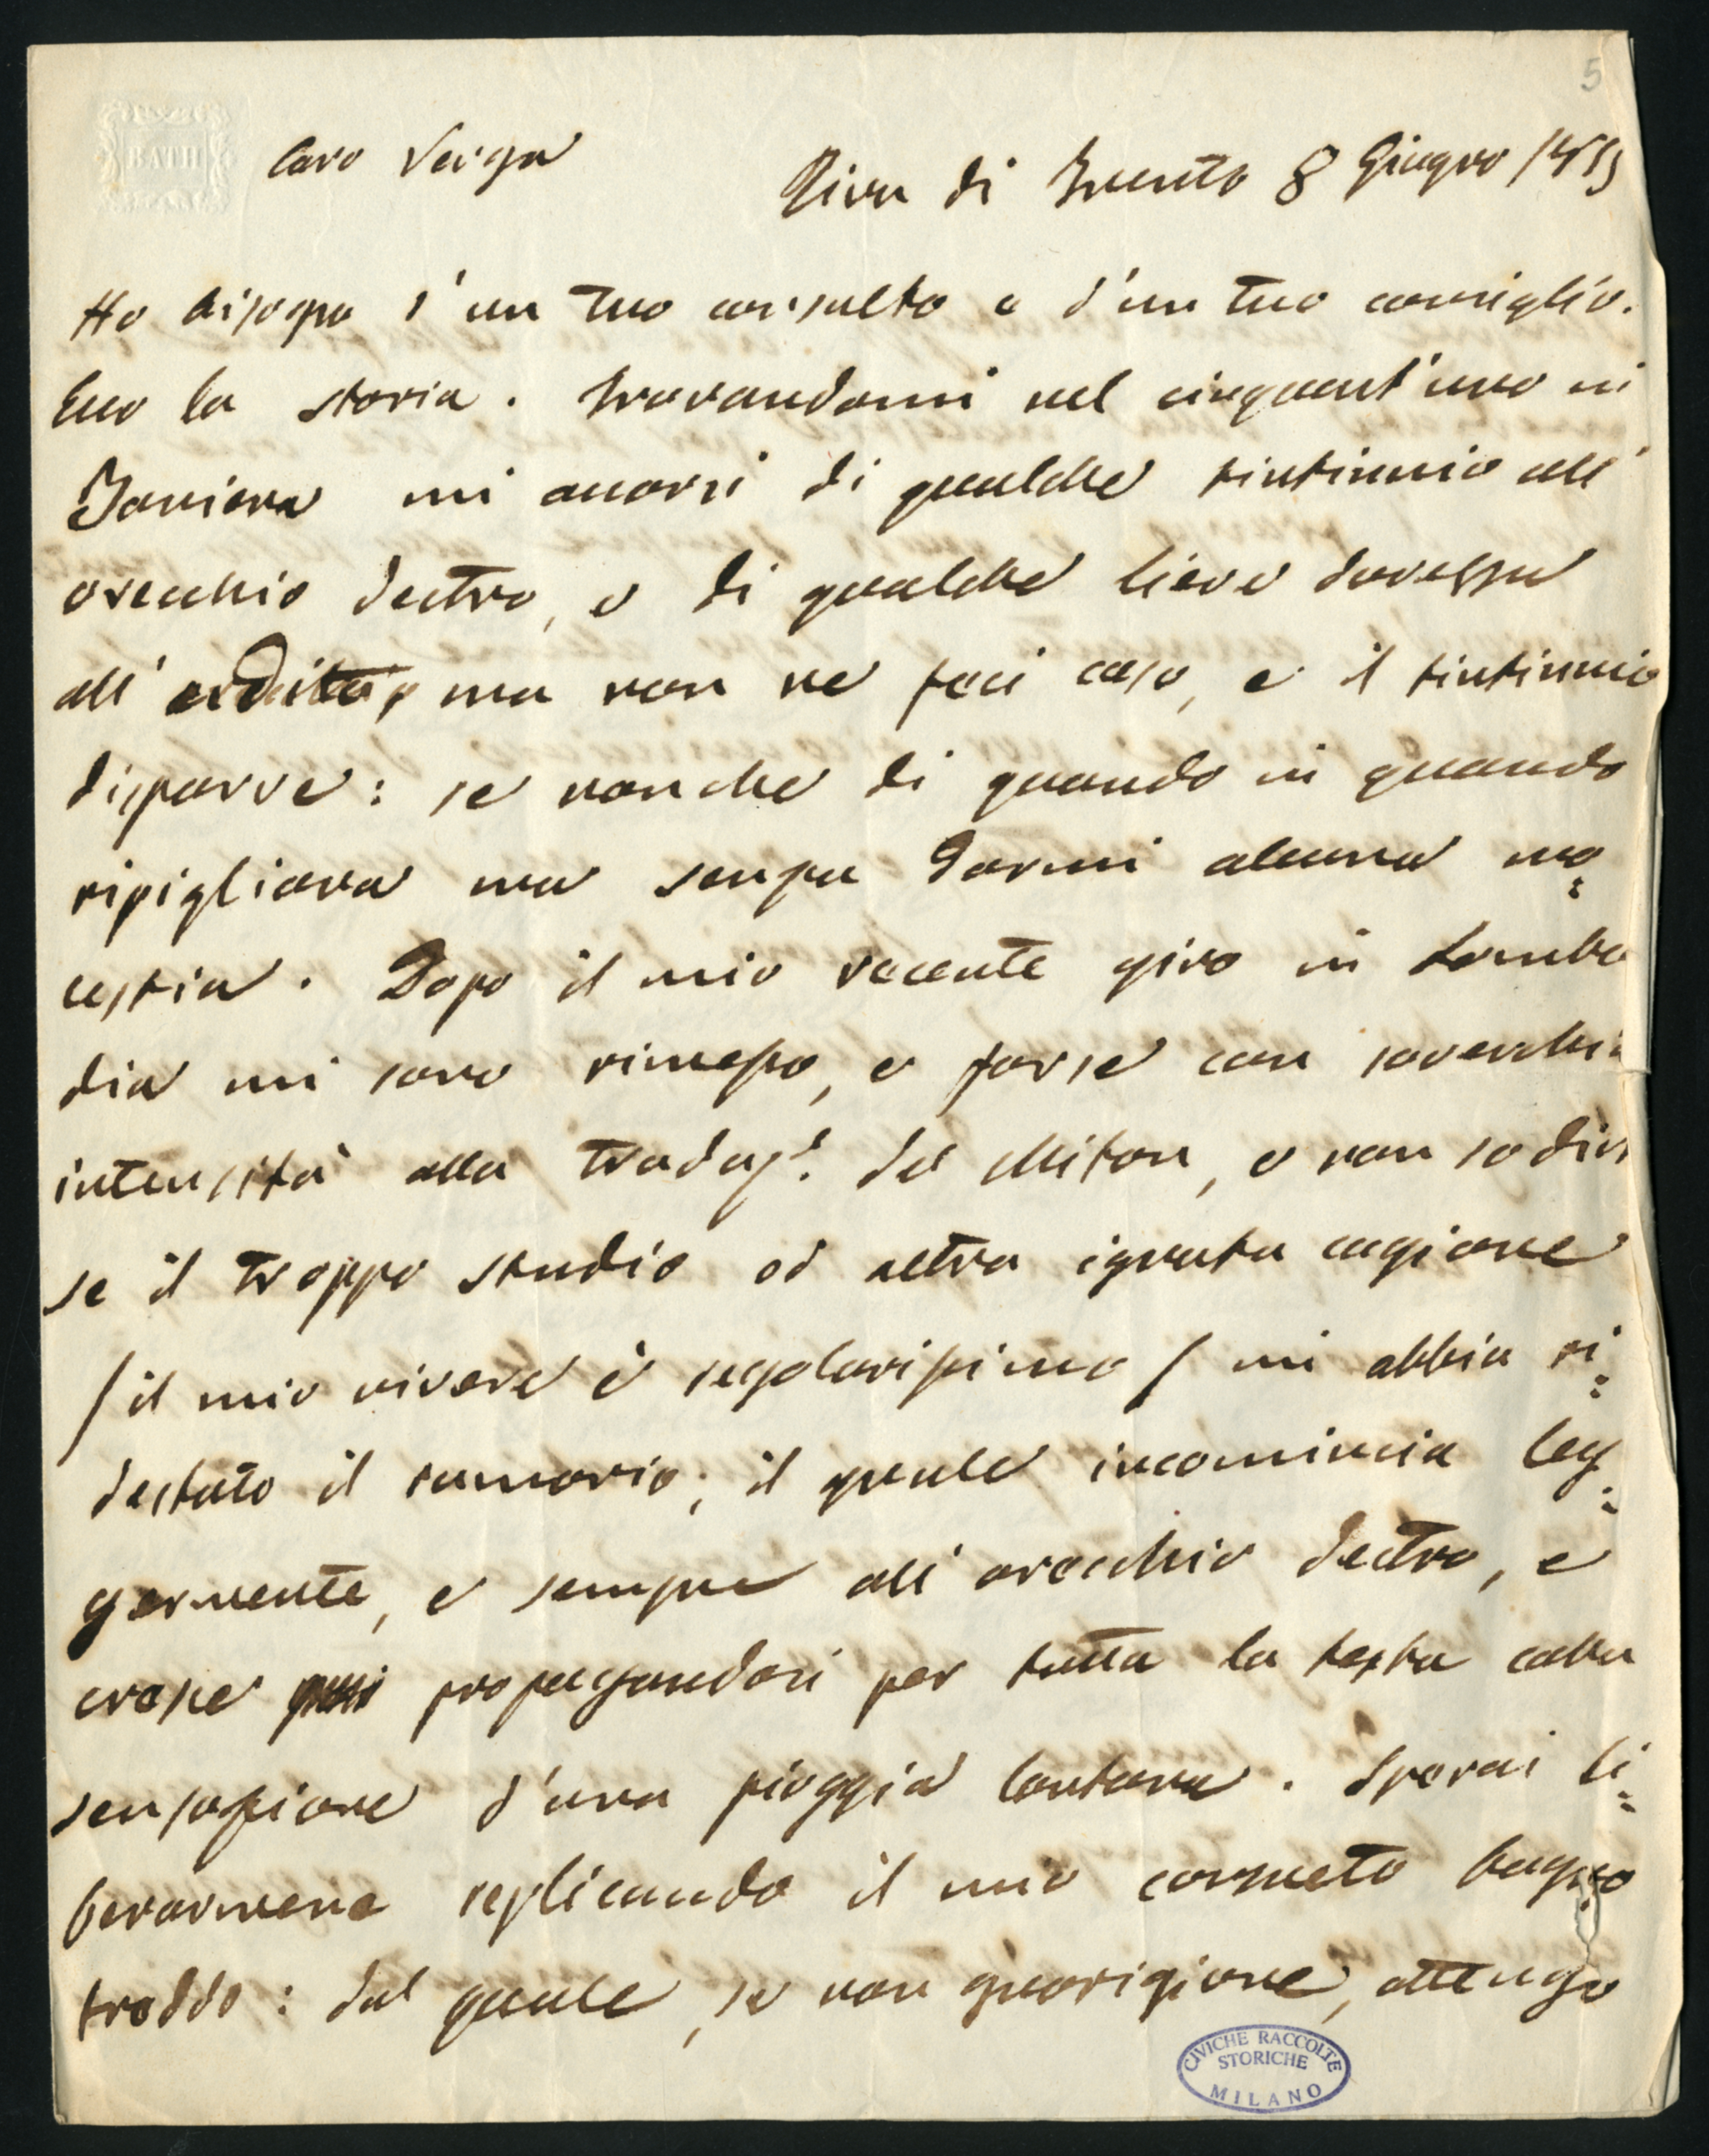 5
BATH
Caro Verga
Riva di Trento 8 Giugno 1855
Ho bisogno d'un tuo consulto e d'un tuo consiglio.
Ecco la storia. Trovandomi nel cinquant'uno in
Baviera mi accorsi di qualche tintinnio all'
orecchio destro, e di qualche lieve durezza
all' udito, ma non ne feci caso, e il tintinnio
disparve: se non che di quando in quando
ripigliava ma senza darmi alcuna mo=
lestia. Dopo il mio recente giro in Lombar
dia mi sono rimesso, e forse con soverchia
intensità alla traduz.e del Milton, e non so dir
se il troppo studio od altra ignota cagione
/ il mio vivere è regolarissimo / mi abbia ri=
destato il rumorio; il quale incomincia leg=
germente, e sempre all' orecchio destro, e
cresce propagandosi per tutta la testa colla
sensazione d'una pioggia lontana. Sperai li=
berarmene replicando il mio consueto bagno
freddo: dal quale, se non guarigione, ottengo
CIVICHE RACCOLTE
STORICHE
MILANO